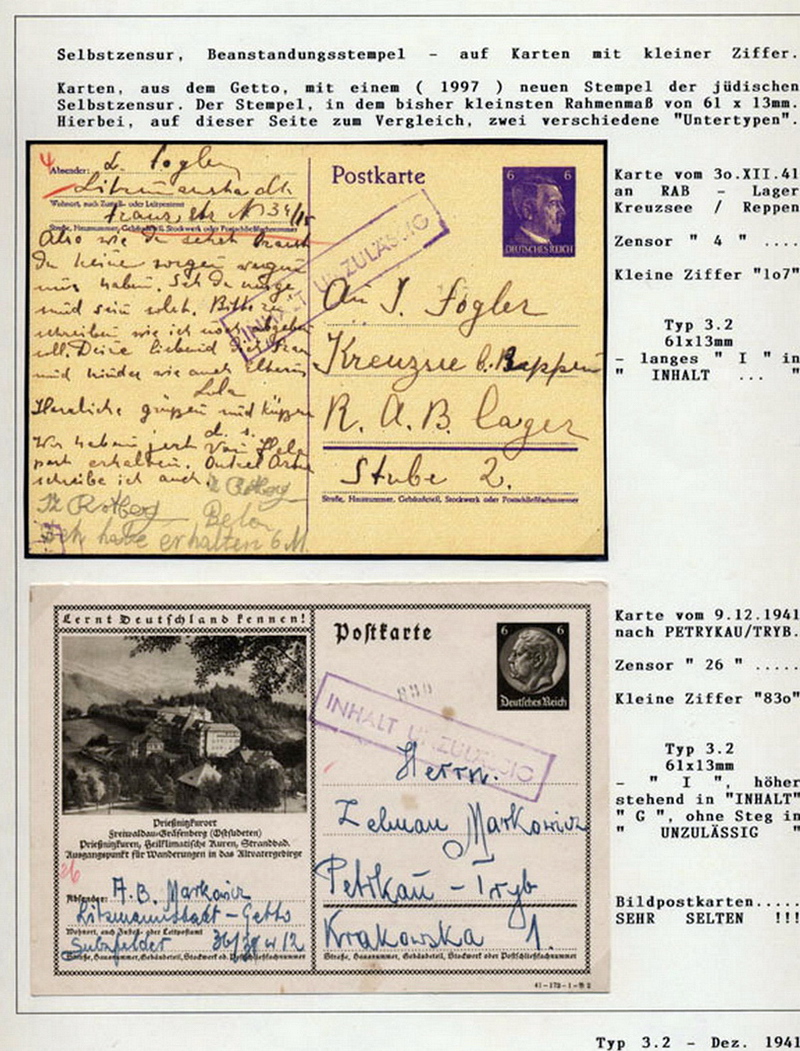 Selbstzensur, Beanstandungsstempel - auf Karten mit kleiner Ziffer.
Karten, aus dem Getto, mit einem ( 1997 ) neuen Stempel der jüdischen
Selbstzensur. Der Stempel, in dem bisher kleinsten Rahmenmaß von 61 x 13mm.
Hierbei, auf dieser Seite zum Vergleich, zwei verschiedene "Untertypen".
4
Absender: L. Fogler
Litzmannstadt
Wohnort, auch Zustell- oder Leitpostamt
Franz str N 34/15
Straße, Hausnummer, Gebäudeteil, Stockwerk oder Postschließfachnummer
Also wie Du siehst brauch
Du keine sorgen wegen
mir haben.
und sein sollst. Bitte zu
schreiben wie ich
Deine liebend
und kinder wie auch Eltern
Lola
Herzliche grüßen und küssen
d. s.
Wir haben jezt von Hela
post erhalten. Onkel
schreibe ich auch.
Rotberg
Bela
Ich habe erhalten 6 M.
Postkarte
6 6
DEUTSCHES REICH
INHALT UNZULÄSSIG
An J. Fogler
Kreuzsee b. Reppen
R. A. B. Lager
Stube 2.
Straße, Hausnummer, Gebäudeteil, Stockwerk oder Postschließfachnummer
Karte vom 3o.XII.41
an RAB - Lager
Kreuzsee / Reppen
Zensor " 4 " ....
Kleine Ziffer "1o7"
Typ 3.2
61x13mm
- langes " I " in
" INHALT ... "
Lernt Deutschland kennen!
Prießnitzkurort
Freiwaldau-Gräfenberg (Ostsudeten)
Prießnitzkuren, Heilklimatische Kuren, Strandbad.
Ausgangspunkt für Wanderungen in das Altvatergebirge
26
Absender: A.B. Markowicz
Litzmannstadt - Getto
Wohnort, auch Zustell- oder Leitpostamt
Sulzfelder 36/38 w 12
Straße, Hausnummer, Gebäudeteil, Stockwerk od. Postschließfachnummer
Postkarte
6 6
Deutsches Reich
830
INHALT UNZULÄSSIG
Herrn.
Zelman Markowicz
Petrikau - Tryb
Krakowska 1.
Straße, Hausnummer, Gebäudeteil, Stockwerk oder Postschließfachnummer
41-173-1-B 2
Karte vom 9.12.1941
nach PETRYKAU/TRYB.
Zensor " 26 " .....
Kleine Ziffer "83o"
Typ 3.2
61x13mm
- " I ", höher
stehend in "INHALT"
" G ", ohne Steg in
" UNZULÄSSIG "
Bildpostkarten.....
SEHR SELTEN !!!
Typ 3.2 - Dez. 1941